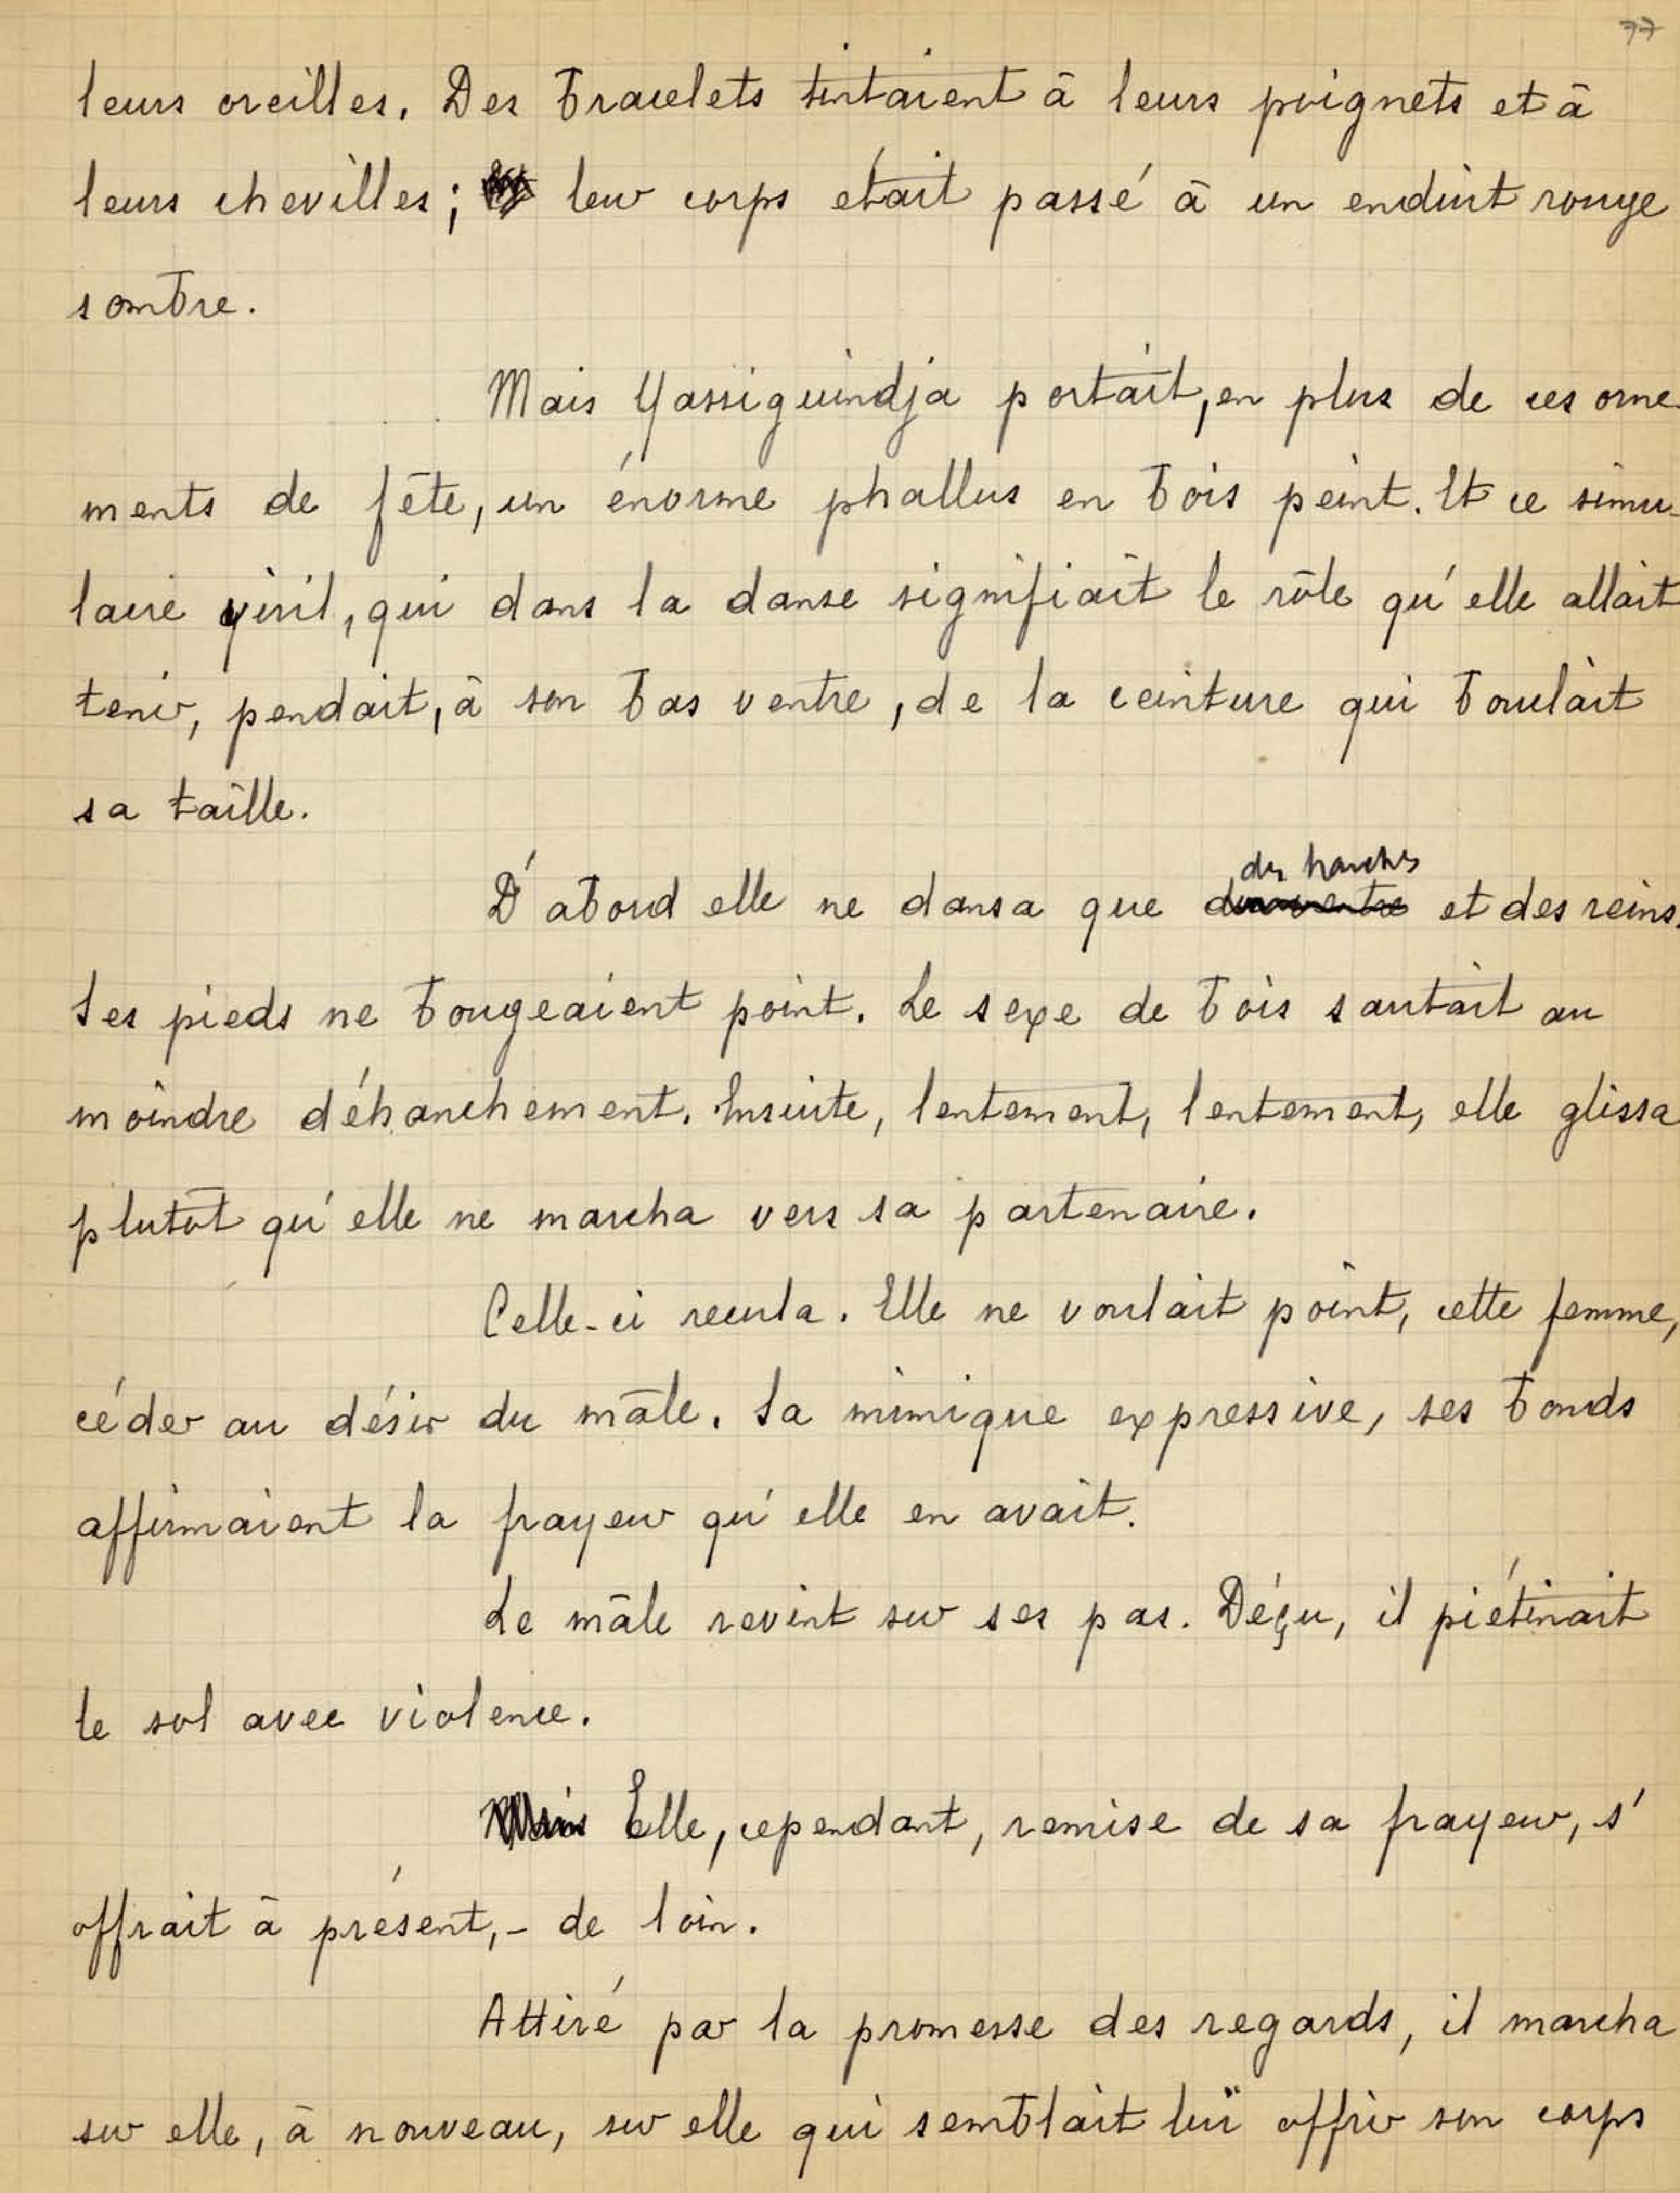 77
leurs oreilles. Des bracelets tintaient à leurs poignets et à
leurs chevilles; leur corps était passé à un enduit rouge
sombre.
Mais Yassiguindja portait, en plus de ces orne
ments de fête, un énorme phallus en bois peint. Et ce simu-
lacre viril, qui dans la danse signifiait le rôle qu'elle allait
tenir, pendait, à son bas ventre, de la ceinture qui bouclait
sa taille.
des hanches
D'abord elle ne dansa que du ventre et des reins.
Ses pieds ne bougeaient point. Le sexe de bois sautait au
moindre déhanchement. Ensuite, lentement, lentement, elle glissa
plutôt qu'elle ne marcha vers sa partenaire.
Celle-ci recula. Elle ne voulait point, cette femme,
céder au désir du mâle. Sa mimique expressive, ses bonds
affirmaient la frayeur qu'elle en avait.
Le mâle revint sur ses pas. Déçu, il piétinait
le sol avec violence.
Mais Elle, cependant, remise de sa frayeur, s'
offrait à présent, - de loin.
Attiré par la promesse des regards, il marcha
sur elle, à nouveau, sur elle qui semblait lui offrir son corps